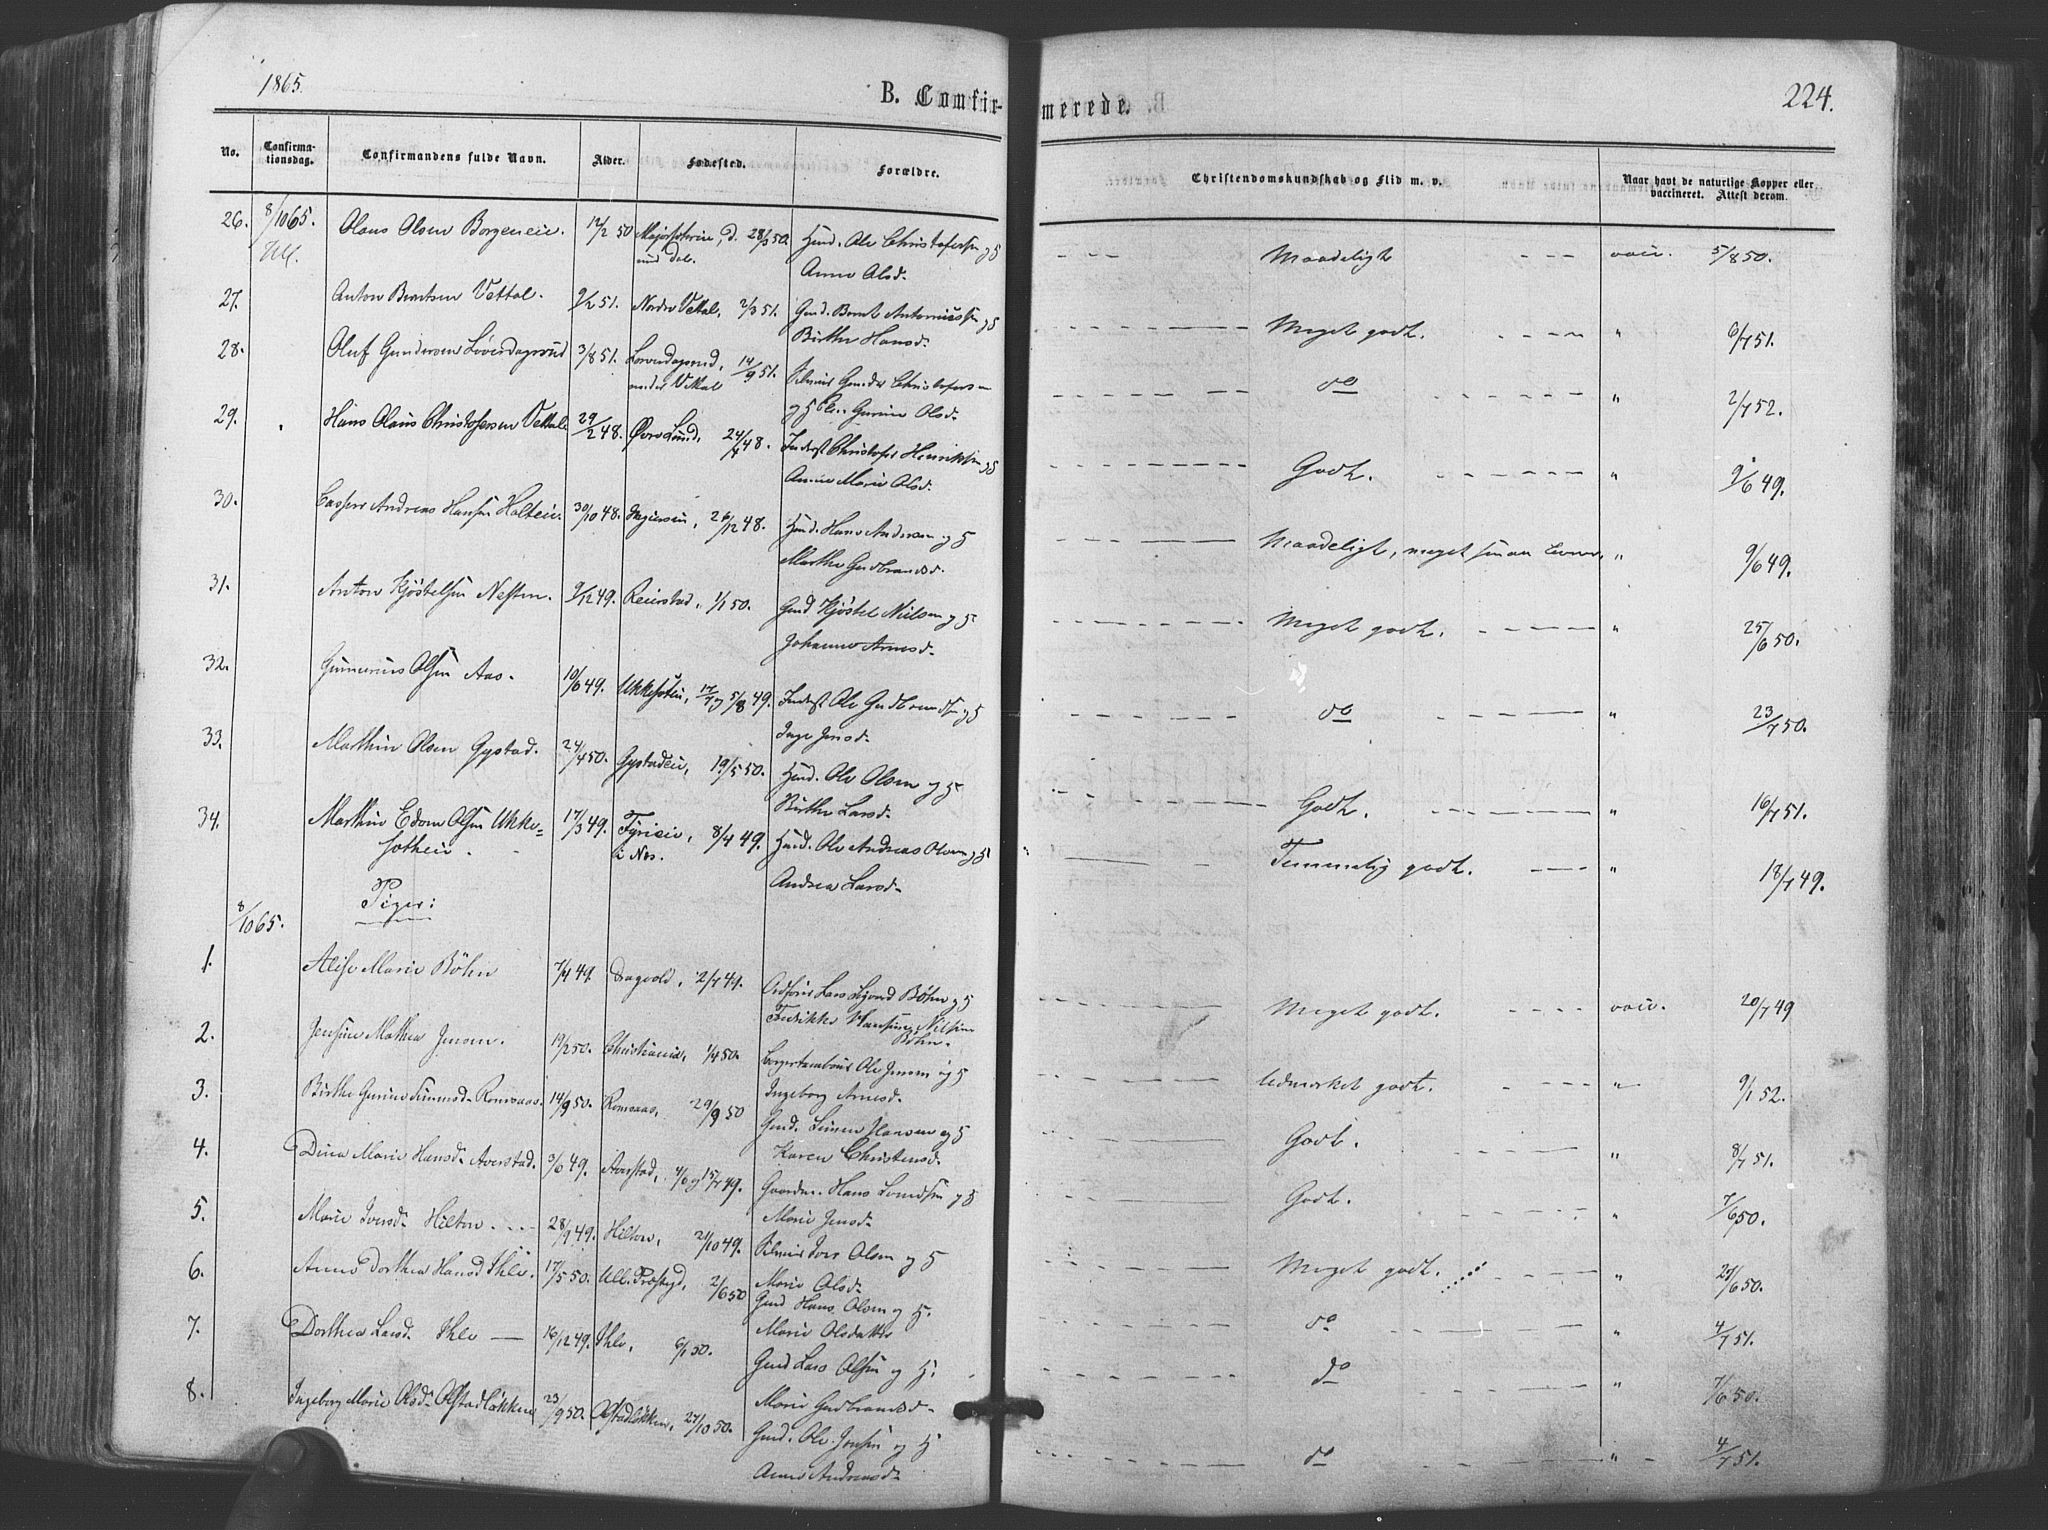 1865.
B. Comfir-
merede.
224.
No.
Confirma-
tionsdag.
Confirmandens fulde Navn.
Alder.
Fødested.
Forældre.
Christendomskundskab og Flid m. v.
Naar havt de naturlige Kopper eller
vaccineret. Attest derom.
26. 8/10 65. Olaus Olsen Borgeneie. 12/2 50 d. 28/3 50. Huusm. Ole Christofersen og H
Anne Olsd.
Maadeligt vacc. 5/8 50.
27. Anton Berntsen Vettal. 9/2 51. Nordre Vettal, 2/3 51. Gmd. Bernt Antoniussen og H
Birthe Hansd.
Meget godt. " 6/7 51.
28. Oluf Gundersen Løverdagsrud 3/8 51. Løverdagsrud, 14/9 51. Gunder Christofersen
under Vettal og H Gurine Olsd.
do " 2/7 52.
29. Hans Olaus Christofersen Vettal 29/2 48. Øvre Lund, 24/4 48. Inderst Christofer Henriksen og H
Anne Marie Olsd.
Godt. " 9/6 49.
30. Casper Andreas Hansen Holteie 30/10 48. 26/12 48. Huusm. Hans Andersen og H
Marthe Gudbrandsd.
Maadeligt, meget " 9/6 49.
31. Anton Kjøstelsen Nesten. 9/12 49. Reierstad, 1/1 50. Gmd Kjøstel Nielsen og H
Johanne Arnesd.
Meget godt. " 25/6 50.
32. Gunnerius Olsen Aas. 10/6 49. Ukkestein, 17/7 og 5/8 49. Inderst Ole Gudbrandsen og H
Inge Jensd.
do " 23/7 50.
33. Marthin Olsen Gystad. 24/4 50. Gystadeie, 19/5 50. Huusm. Ole Olsen og H
Birthe Larsd.
Godt. " 16/7 51.
34. Marthin Edom Olsen Ukke- 17/3 49. Tyrieie, 8/4 49. Huusm. Ole Andreas Olsen og H
i Nes. Andrea Larsd.
Temmelig godt. " 18/7 49.
8/10 65. Piger:
1. Alise Marie Bøhn 7/4 49. Dragvold, 2/7 49. Lars Sigvard Bøhn og H
Fredrikke Nilsine
Bøhn.
Meget godt. vacc. 20/7 49
2. Jensine Mathea Jensen. 19/2 50. Christiania, 1/4 50. Ole Jensen og H
Ingeborg Arnesd.
Udmerket godt. " 9/1 52.
3. Birthe Gurine Simensd. Romsaas. 14/9 50. Romsaas, 29/9 50 Gmd. Simen Hansen og H
Karen Christensd.
Godt. " 8/7 51.
4. Dina Marie Hansd. Averstad. 3/6 49. Averstad, 4/6 og 15/7 49. Gaardm. Hans og H
Marie Jensd.
Godt. " 7/6 50.
5. Marie Iversd. Hilton. 28/9 49. Hilton, 21/10 49. Iver Olsen og H
Marie Olsd.
Meget godt. " 27/6 50.
6. Anne Dorthea Hansd Ihle. 17/5 50. Ull. Præstgd, 2/6 50 Gmd Hans Olsen og H.
Marie Olsdatter
do " 4/7 51.
7. Dorthea Larsd. Ihle 16/12 49. Ihle, 6/1 50. Gmd Lars Olsen og H.
Marie Gudbrandsd.
do " 7/6 50.
8. Ingeborg Marie Olsd. Olstadløkken 23/9 50. Olstadløkken, 27/10 50. Gmd. Ole Jensen og H
Anne Andreasd.
do " 4/7 51.